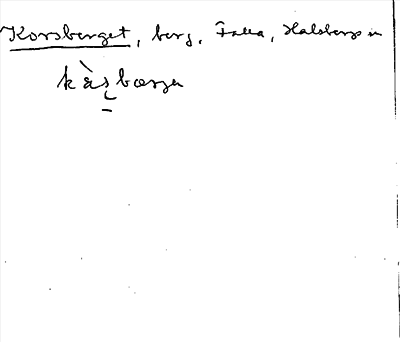 Korsberget, berg, Falla, Halsbergs sn
kàsbærge